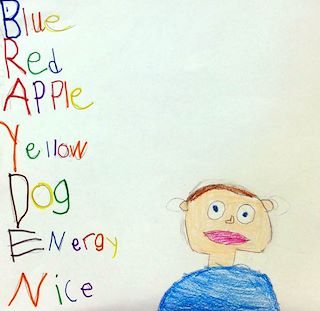 Blue
Red
APPle
Yellow
Dog
ENergy
Nice